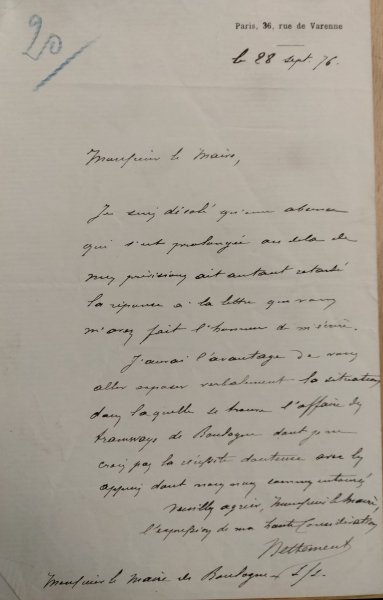 20
Paris, 36, rue de Varenne
le 28 sept. 76.
Monsieur le Maire,
Je suis désolé qu'une absence
qui s'est prolongée au delà de
mes prévisions ait autant retardé
la réponse à la lettre que vous
m'avez fait l'honneur de m'écrire.
J'aurai l'avantage de vous
aller exposer verbalement la situation
dans laquelle se trouve l'affaire des
tramways de Boulogne dont je ne
crois pas la réussite douteuse avec les
appuis dont nous nous sommes entourés
Veuillez agréer, Monsieur le Maire,
l'expression de ma haute Considération
Nettement
Monsieur le Maire de Boulogne s/s.